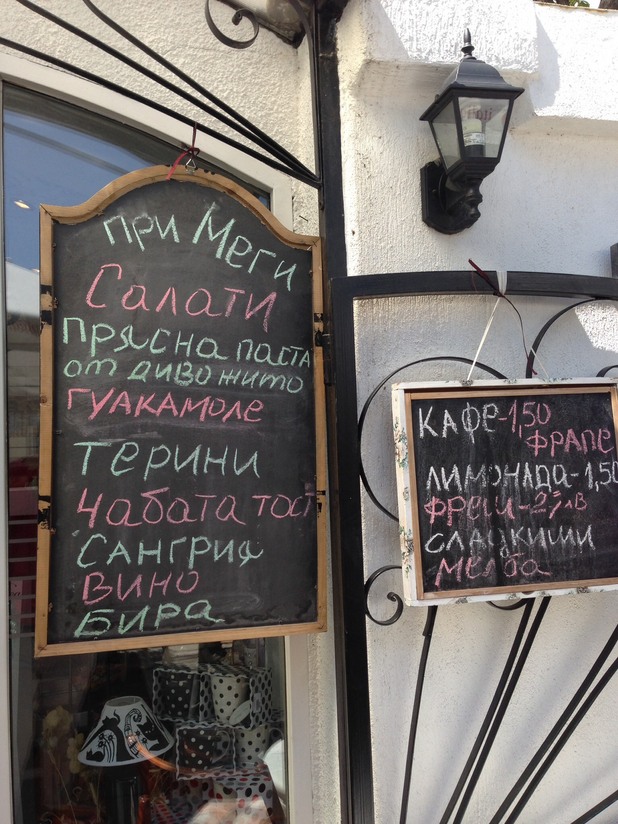 при Меги
Салати
Прясна паста
от диво жито
Гуакамоле
Терини
Чабата тост
Сангрия
Вино
Бира
Кафе-1,50
Фрапе
Лимонада-1,50
Фреш-2 лв
Сладкиши
Мелба